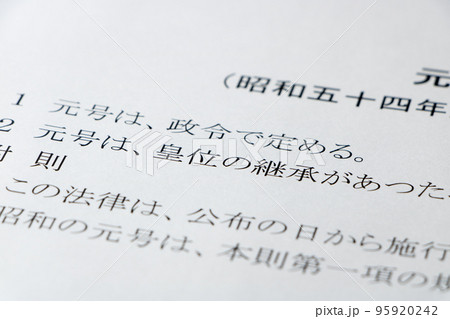 元
(昭和五十四年
1 元号は、政令で定める。
2 元号は、皇位の継承があつた
附 則
この法律は、公布の日から施行
昭和の元号は、本則第一項の規
pixta
pixta.jp - 95920242